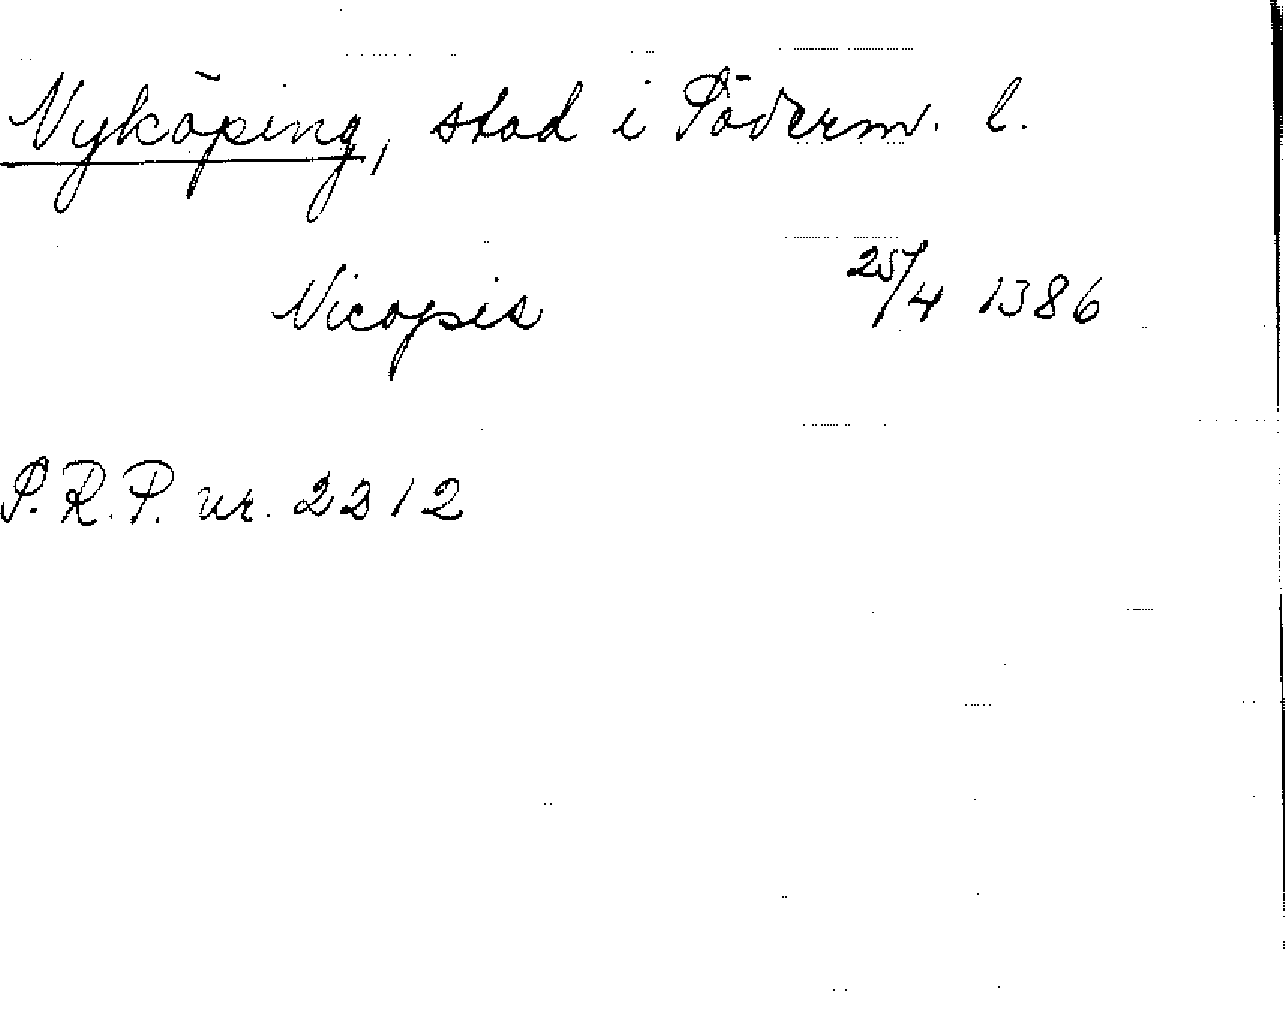 Nyköping, stad i Söderm. l.
Nicopis 25/4 1386
S.R.P. nr. 2212